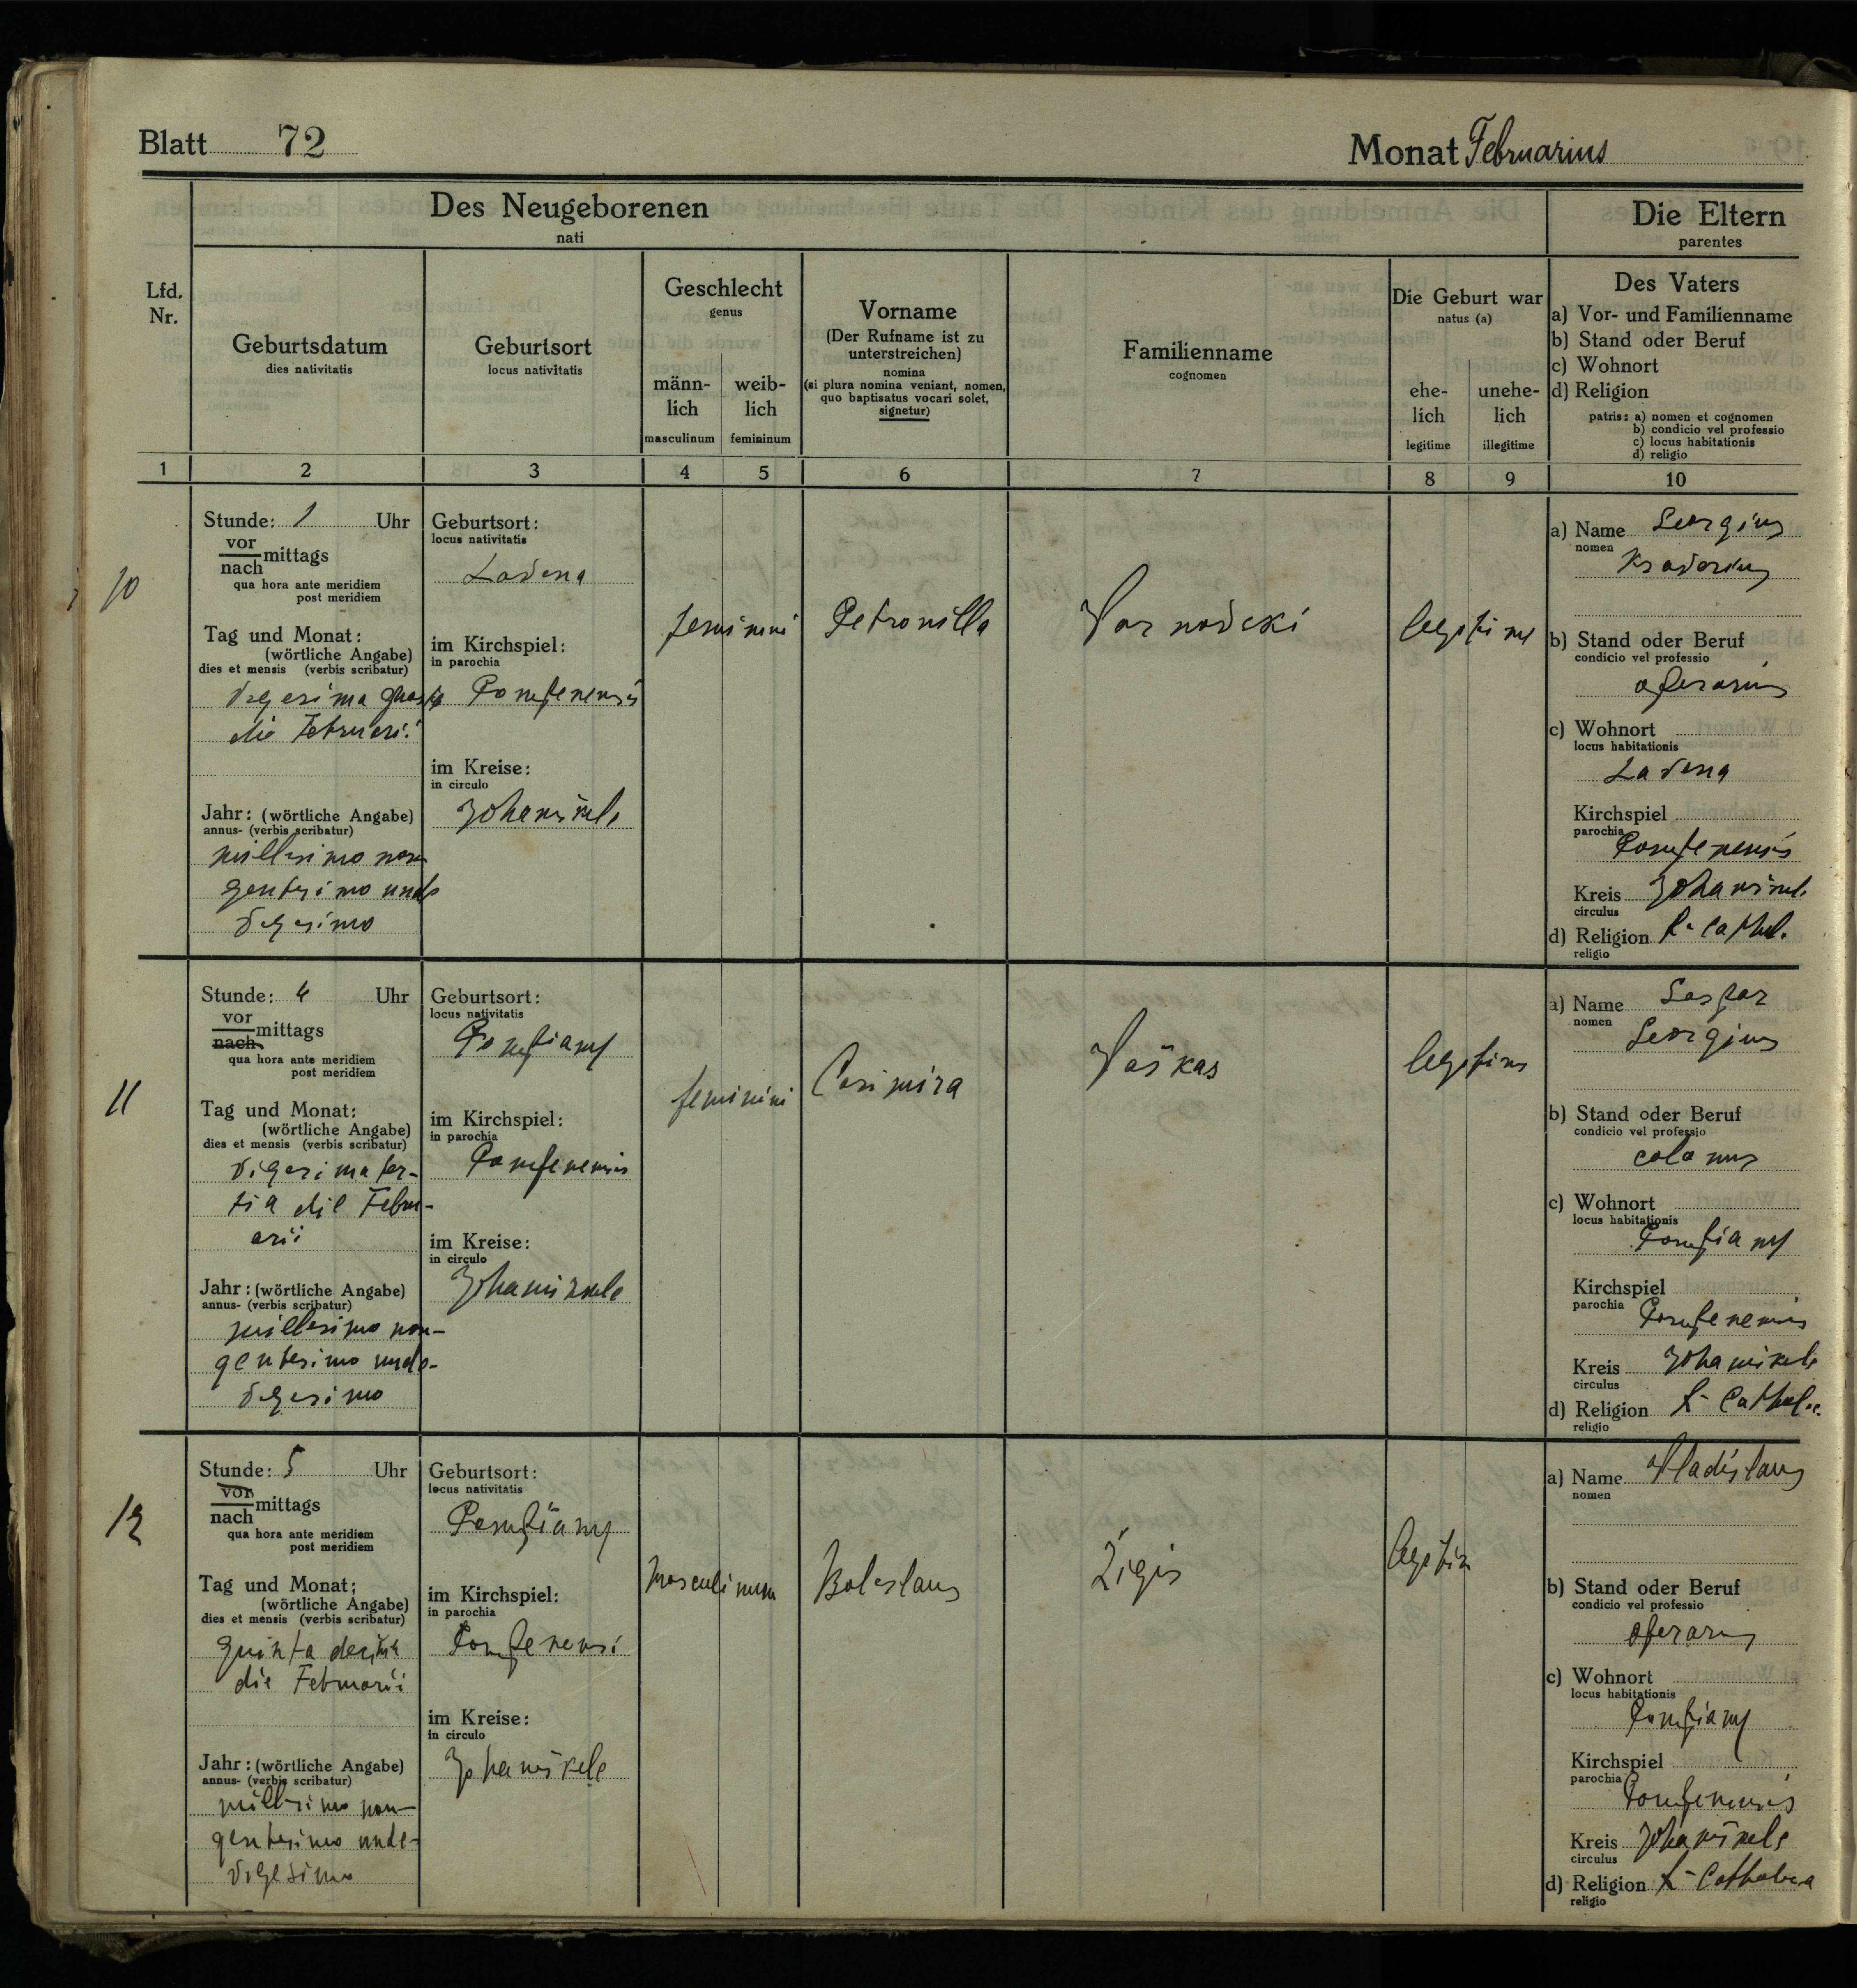 Blatt 72
Monat Februarius
Des Neugeborenen
nati
Die Eltern
parentes
Lfd.
Nr.
Geburtsdatum
dies nativitatis
Geburtsort
locus nativitatis
Geschlecht
genus
männ-
lich
masculinum
weib-
lich
femininum
Vorname
(Der Rufname ist zu
unterstreichen)
nomina
(si plura nomina veniant, nomen,
quo baptisatus vocari solet,
signetur)
Familienname
cognomen
Die Geburt war
natus (a)
ehe-
lich
legitime
unehe-
lich
illegitime
Des Vaters
a) Vor- und Familienname
b) Stand oder Beruf
c) Wohnort
d) Religion
patris: a) nomen et cognomen
b) condicio vel professio
c) locus habitationis
d) religio
1 2 3 4 5 6 7 8 9 10
10
Stunde: 1 Uhr
vor
nach mittags
qua hora ante meridiem
post meridiem
Tag und Monat:
(wörtliche Angabe)
dies et mensis (verbis scribatur)
die Februarii
Jahr: (wörtliche Angabe)
annus- (verbis scribatur)
millesimo non
gentesimo unde
vigesimo
Geburtsort:
locus nativitatis
im Kirchspiel:
in parochia
im Kreise:
in circulo
Johaniškele
feminini
Petronilla
legitime
a) Name Georgius
nomen
b) Stand oder Beruf
condicio vel professio
operarius
c) Wohnort
locus habitationis
Kirchspiel
parochia
Kreis Johaniškele
circulus
d) Religion r. cathol.
religio
11
Stunde: 4 Uhr
vor
nach mittags
qua hora ante meridiem
post meridiem
Tag und Monat:
(wörtliche Angabe)
dies et mensis (verbis scribatur)
vigesima ter-
tia die Febru-
arii
Jahr: (wörtliche Angabe)
annus- (verbis scribatur)
millesimo non-
gentesimo unde-
vigesimo
Geburtsort:
locus nativitatis
im Kirchspiel:
in parochia
im Kreise:
in circulo
Johaniškele
feminini
Casimira
Vaškas
legitime
a) Name Gaspar
nomen
Georgius
b) Stand oder Beruf
condicio vel professio
colonus
c) Wohnort
locus habitationis
Kirchspiel
parochia
Kreis Johaniškele
circulus
d) Religion r. Cathol.
religio
12
Stunde: 5 Uhr
vor
nach mittags
qua hora ante meridiem
post meridiem
Tag und Monat:
(wörtliche Angabe)
dies et mensis (verbis scribatur)
quinta decima
die Februarii
Jahr: (wörtliche Angabe)
annus- (verbis scribatur)
millesimo non-
gentesimo unde-
vigesimo
Geburtsort:
locus nativitatis
im Kirchspiel:
in parochia
im Kreise:
in circulo
Johaniškele
masculinum
Boleslaus
Žigis
legitim
a) Name Vladislaus
nomen
b) Stand oder Beruf
condicio vel professio
operarius
c) Wohnort
locus habitationis
Kirchspiel
parochia
Kreis Johaniškele
circulus
d) Religion r. Catholica
religio